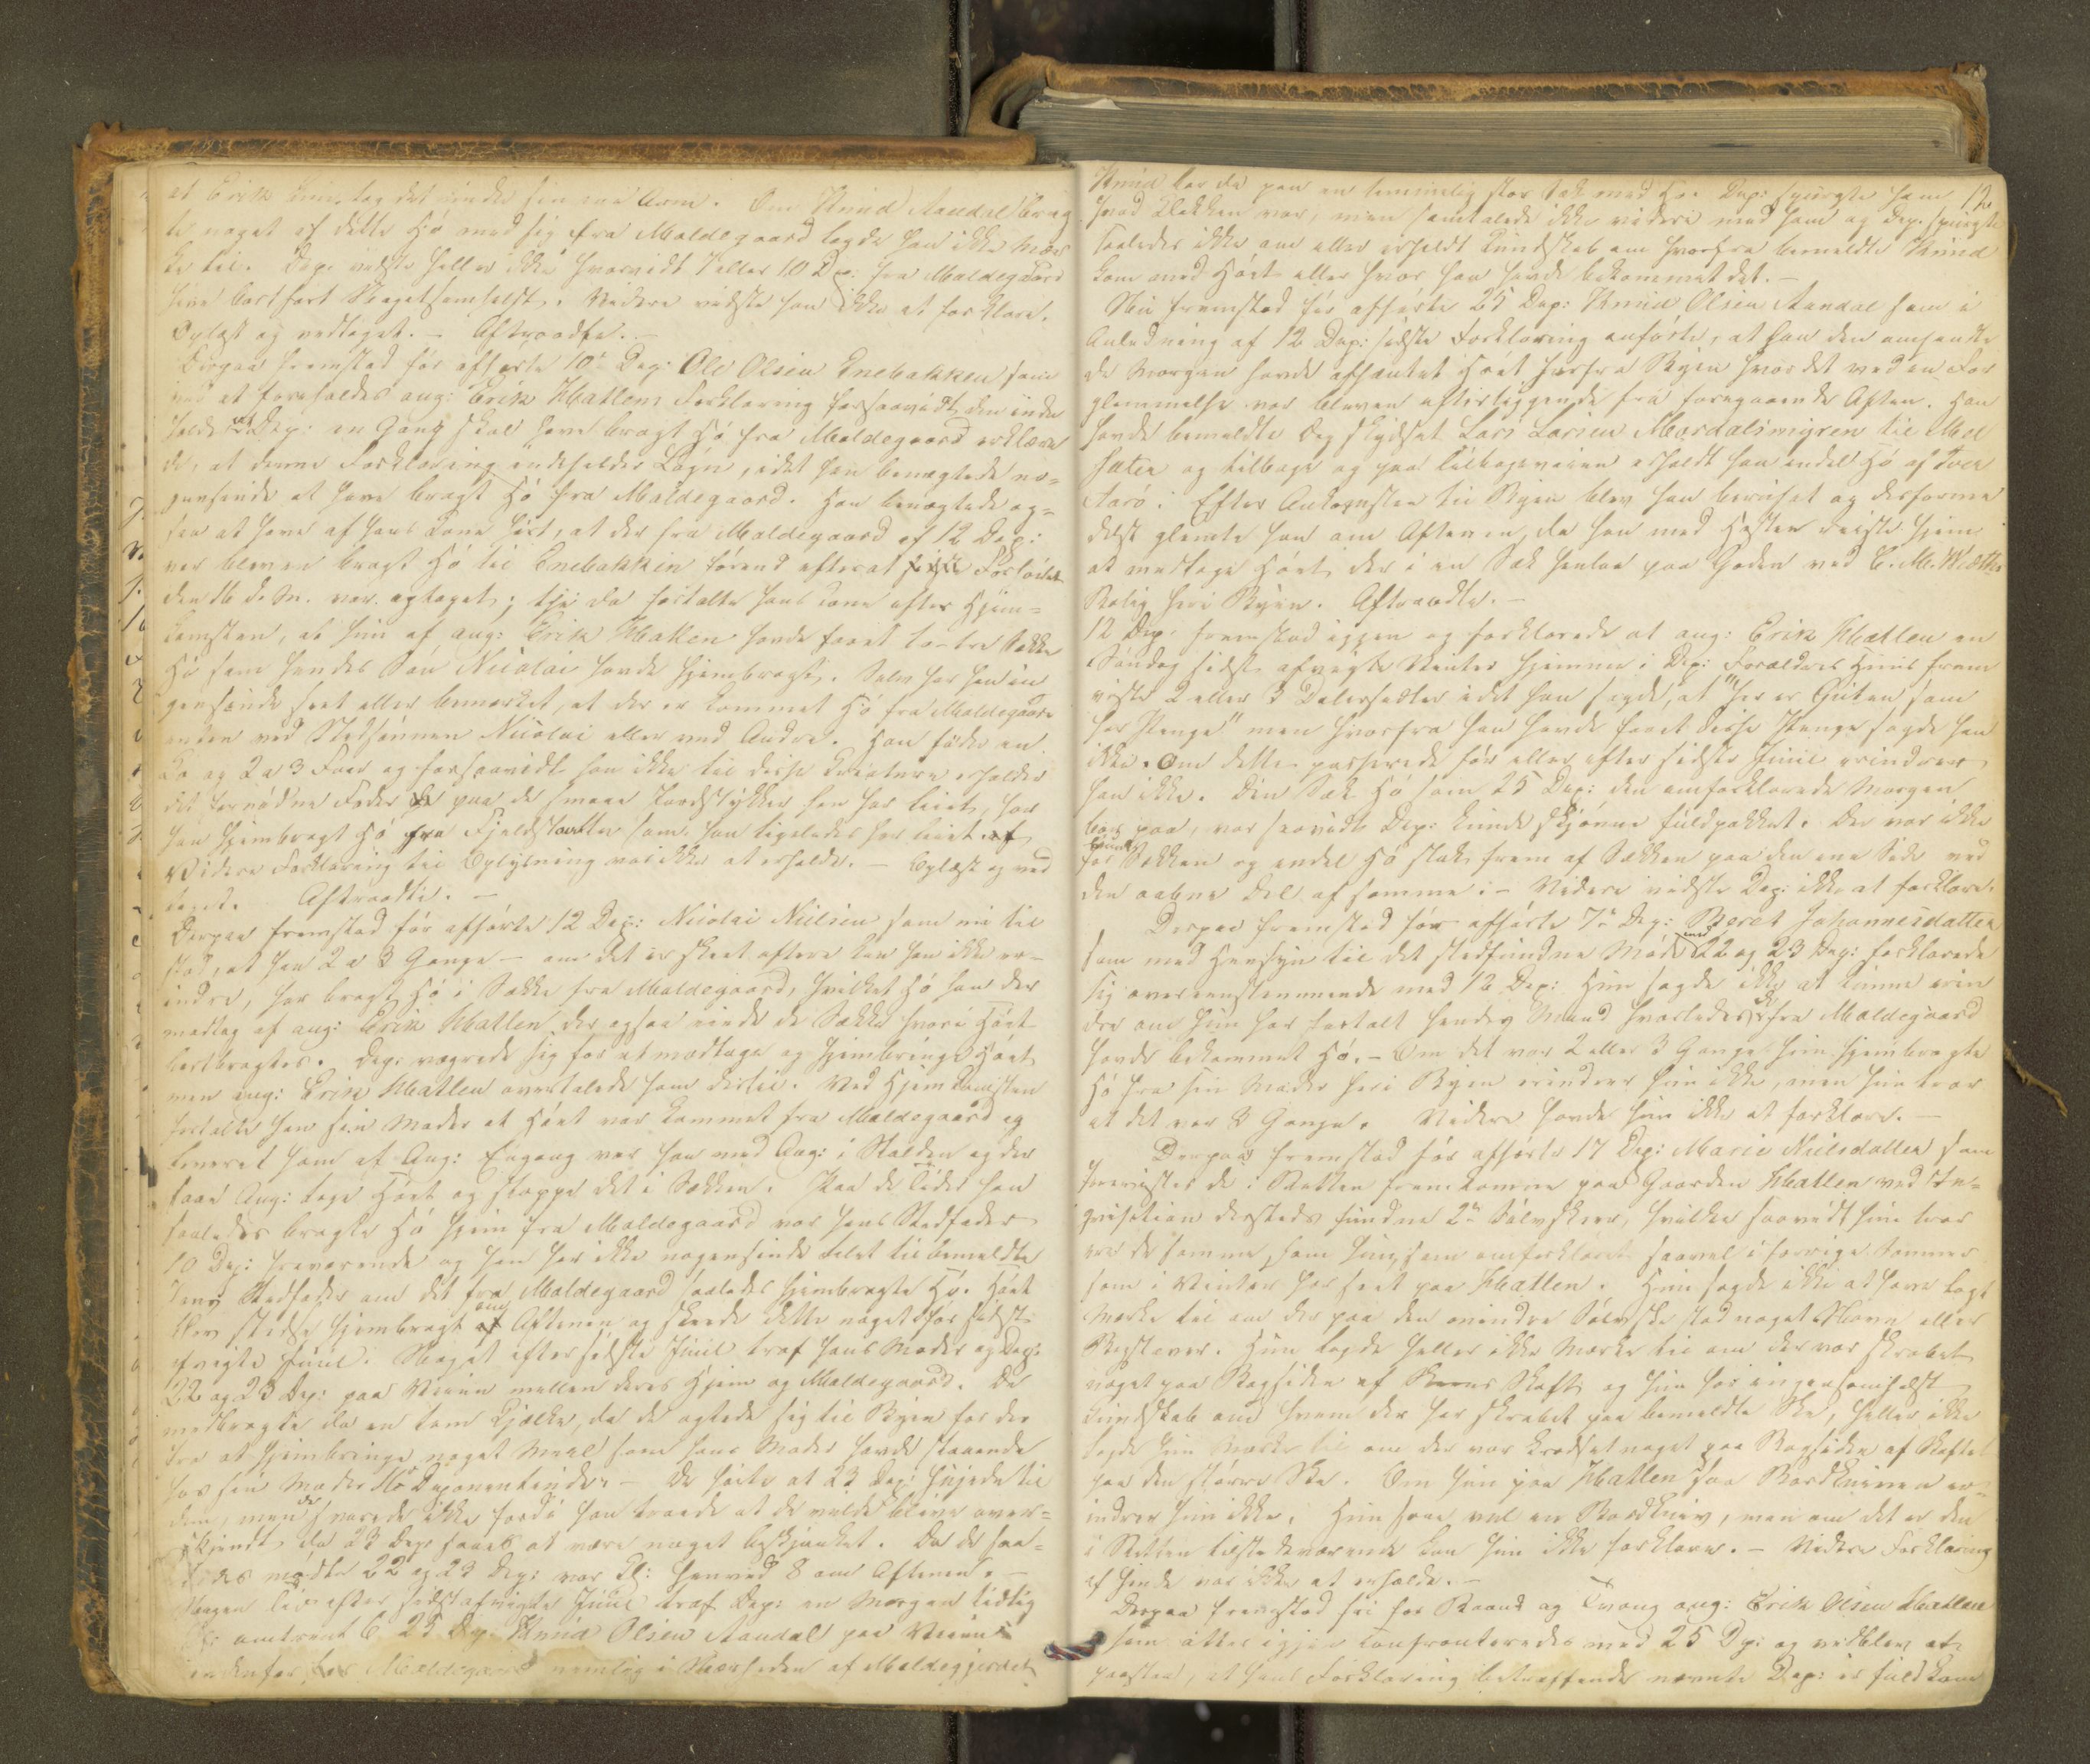 at Erik Hein. tog det under sin ene Arm. Om Knud Aandal brag
te noget af dette Hø med sig fra Moldegaard lagde han ikke Mær
ke til. Dep: vidste heller ikke hvorvidt 7 eller 10 Dep: fra Moldegaard
have bortført Nogetsomhelst. Videre vidste han ikke at forklare.
Oplæst og vedtaget. – Aftraadte. –
Derpaa fremstod før afhørte 10de Dep: Ole Olsen Enebakken som
ved at foreholdes ang: Erik Hatlens Forklaring forsaavidt den inde
holdt at Dep: en Gang skal have bragt Hø fra Moldegaard erklære
de, at denne Forklaring indeholder Løgn, idet han benægtede no=
gensinde at have bragt Hø fra Moldegaard. Han benægtede og=
saa at have af hans Kone hørt, at der fra Moldegaard af 12 Dep:
var bleven bragt Hø til Enebakken førend efterat sidste Forhør
den 16 d. M. var optaget; thi da fortalte hans Kone efter Hjem=
komsten, at hun af ang: Erik Hatlen havde faaet to–tre Sække
Hø som hendes Søn Nicolai havde hjembragt. Selv har han in
gensinde seet eller bemærket, at der er kommet Hø fra Moldegaard
enten ved Stedsønnen Nicolai eller ved Andre. Han føder en
Ko og 2 a 3 Faar og forsaavidt han ikke til disse Kreature erholder
det fornødne Foder paa de smaae Jordstykker han har leiet, har
han hjembragt Hø fra Fjeldslaatter som han ligeledes har leiet.
Videre Forklaring til Oplysning var ikke at erholde. – Oplæst og ved
taget. Aftraadte. –
Derpaa fremstod før afhørte 12 Dep: Nicolai Nielsen som nu til
stod, at han 2 a 3 Gange – om det er skeet oftere kan han ikke er=
indre, har bragt Hø i Sække fra Moldegaard, hvilket Hø han der
modtog af ang: Erik Hatlen der ogsaa eiede de Sække hvori Høet
bortbragtes. Dep: vægrede sig for at modtage og hjembringe Høet
men ang: Erik Hatlen overtalede ham dertil. Ved Hjemkomsten
fortalte han sin Moder at Høet var kommet fra Moldegaard og
leveret ham af Ang: Engang var han med Ang: i Stalden og der
saae Ang: tage Høet og stoppe det i Sækken. Paa de Tider han
saaledes bragte Hø hjem fra Moldegaard var hans Stedfader
10 Dep: fraværende og han har ikke nogensinde talet til bemeldte
hans Stedfader om det fra Moldegaard saaledes hjembragte Hø. Høet
blev stedse hjembragt om Aftenen og skeede dette noget før sidst
afvigte Juul. Noget efter sidste Juul traf hans Moder og Dep:
22 og 23 Dep: paa Veien mellem deres Hjem og Moldegaard. De
medbragte da en tom Kjælke, da de agtede sig til Byen for der
fra at hjembringe noget Meel som hans Moder havde staaende
hos sin Moder 11te Deponentinde. – De hørte at 23 Dep: hujede til
dem, men de svarede ikke fordi han troede at de vilde blive over=
skjendt da 23 Dep: saaes at være noget beskjænket. Da de saa=
ledes mødte 22 og 23 Dep: var Kl: henved 8 om Aftenen. –
Nogen Tid efter sidstafvigte Juul traf Dep: en Morgen tidlig
Kl: omtrent 6 25 Dep: Knud Olsen Aandal paa Veien
indenfor for Moldegaard nemlig i Nærheden af Moldegjerdet
12
Knud bar da paa en temmelig stor Sæk med Hø. Dep: spurgte ham
hvad Klokken var, men samtalede ikke videre med ham og Dep. spurgte
saaledes ikke om eller erholdt Kundskab om hvorfra bemeldte Knud
kom med Høet eller hvor han havde bekommet det. –
Nu fremstod før afhørte 25 Dep: Knud Olsen Aandal som i
Anledning af 12 Dep: sidste Forklaring anførte, at han den omhandle
de Morgen havde afhæntet Høet herfra Byen hvor det ved en For
glemmelse var bleven efterliggende fra foregaaende Aften. Han
havde bemeldte Dag skydset Lars Larsen Mordalsmyren til Mel
sæter og tilbage og paa Tilbageveien erholdt han endel Hø af Iver
Aarø. Efter Ankomsten til Byen blev han beruset og desforme
delst glemte han om Aftenen, da han med Hesten reiste hjem
at medtage Høet, der i en Sæk henlaa paa Gaden ved C. M. Wiæths
Bolig heri Byen. Aftraadte. –
12 Dep: fremstod igjen og forklarede at ang: Erik Hatlen en
Søndag sidst afvigte Vinter hjemme i Dep: Forældres Huus frem
viste 2 eller 3 Dalersedler idet han sagde, at "her er Guten som
har Penge" men hvorfra han havde faaet disse Penge sagde han
ikke. Om dette passerede før eller efter sidste Juul erindrer
han ikke. Den Sæk Hø som 25 Dep: den omforklarede Morgen
bar paa, var saavidt Dep: kunde skjønne fuldpakket. Der var ikke
bunde
for Sækken og endel Hø stak frem af Sækken paa den ene Side ved
den aabne Del af samme. – Videre vidste Dep: ikke at forklare.
Derpaa fremstod før afhørte 7de Dep: Beret Johannesdatter
som med Hensyn til det stedfundne Møde med 22 og 23 Dep: forklarede
sig overeenstemmende med 12 Dep: Hun sagde ikke at kunne erin
dre om hun har fortalt hendes Mand hvorledes de fra Moldegaard
havde bekommet Hø. – Om det var 2 eller 3 Gange hun hjembragte
Hø fra sin Moder heri Byen erindrer hun ikke, men hun tror
at det var 3 Gange. Videre havde hun ikke at forklare. –
Derpaa fremstod før afhørte 17 Dep: Marie Nielsdatter som
forevistes de i Retten fremkomne paa Gaarden Hatlen ved In=
qvisition dersteds fundne 2de Sølvskeer, hvilke saavidt hun tror
ere de samme, som hun, som omforklaret saavel i forrige Sommer
som i Vinter har seet paa Hatlen. Hun sagde ikke at have lagt
Mærke til om der paa den mindre Sølvske stod noget Navn eller
Bogstaver. Hun lagde heller ikke Mærke til om der var skrabet
noget paa Bagsiden af Skeens Skaft og hun har ingensomhelst
Kundskab om hvem der har skrabet paa bemeldte Ske, heller ikke
lagde hun Mærke til om der var kradset noget paa Bagsiden af Skaftet
paa den større Ske. Om hun paa Hatlen saa Bordkniven er=
indrer hun ikke. Hun saae vel en Bordkniv, men om det er den
i Retten tilstedeværende kan hun ikke forklare. – Videre Forklaring
af hende var ikke at erholde. –
Derpaa fremstod fri for Baand og Tvang ang: Erik Olsen Hatlen
som atter igjen confronteredes med 25 Dep: og vedblev at
paastaa, at hans Forklaring betræffende nævnte Dep: er fuldkom